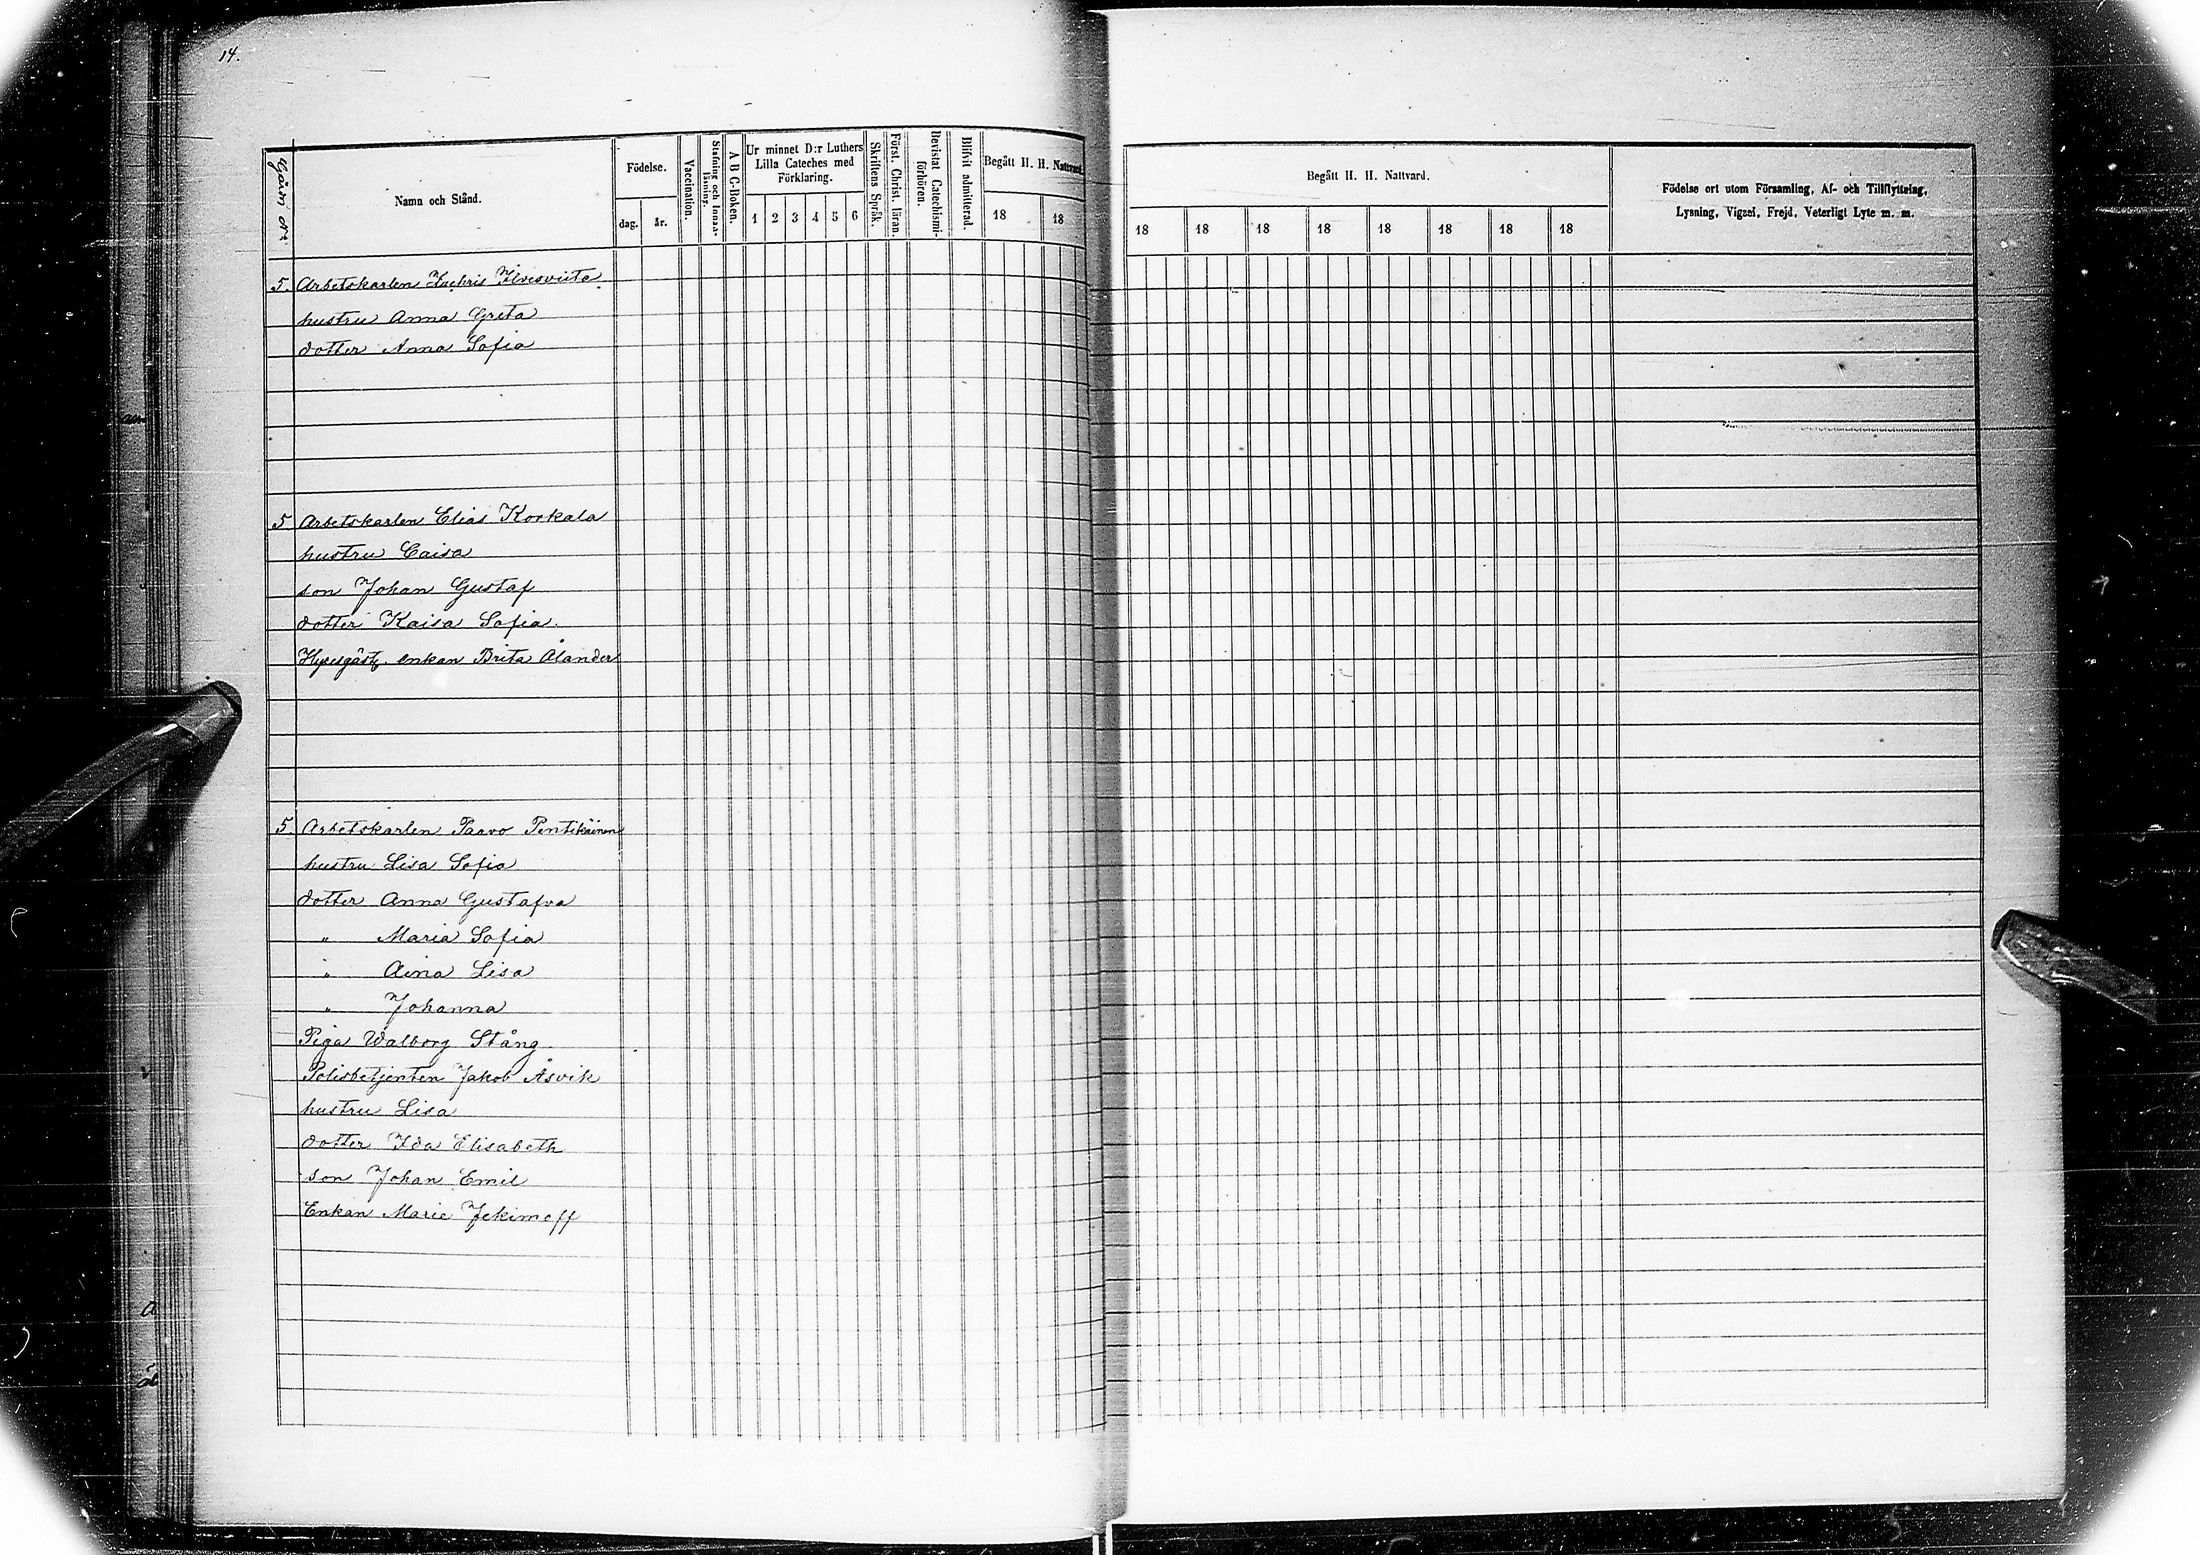 14.
Gården №
Namn och Stånd.
Födelse.
dag.
år.
Vaccination.
Stafning och Innan-läsning.
A B C-Boken.
Ur minnet D:r Luthers Lilla Cateches med Förklaring.
1 2 3 4 5 6
Skriftens Språk.
Först. Christ. läran.
Bevistat Catechismi-förhören.
Blifvit admitterad.
Begått H. H. Nattvard.
18 18
Begått H. H. Nattvard.
18 18 18 18 18 18 18 18
Födelse ort utom Församling, Af- och Tillflyttning,
Lysning, Vigsel, Frejd, Veterligt Lyte m. m.
5. Arbetskarlen Zachris Ilvesviita
hustru Anna Greta
dotter Anna Sofia
5 Arbetskarlen Elias Korkala
hustru Caisa
son Johan Gustaf
dotter Kaisa Sofia
Hyresgäst. enkan Brita Ålander
5. Arbetskarlen Paavo Pentikäinen
hustru Lisa Sofia
dotter Anna Gustafva
" Maria Sofia
" Aina Lisa
" Johanna
Piga Walborg Stång
Polisbetjenten Jakob Åsvik
hustru Lisa
dotter Ida Elisabeth
son Johan Emil
Enkan Marie Jekimoff